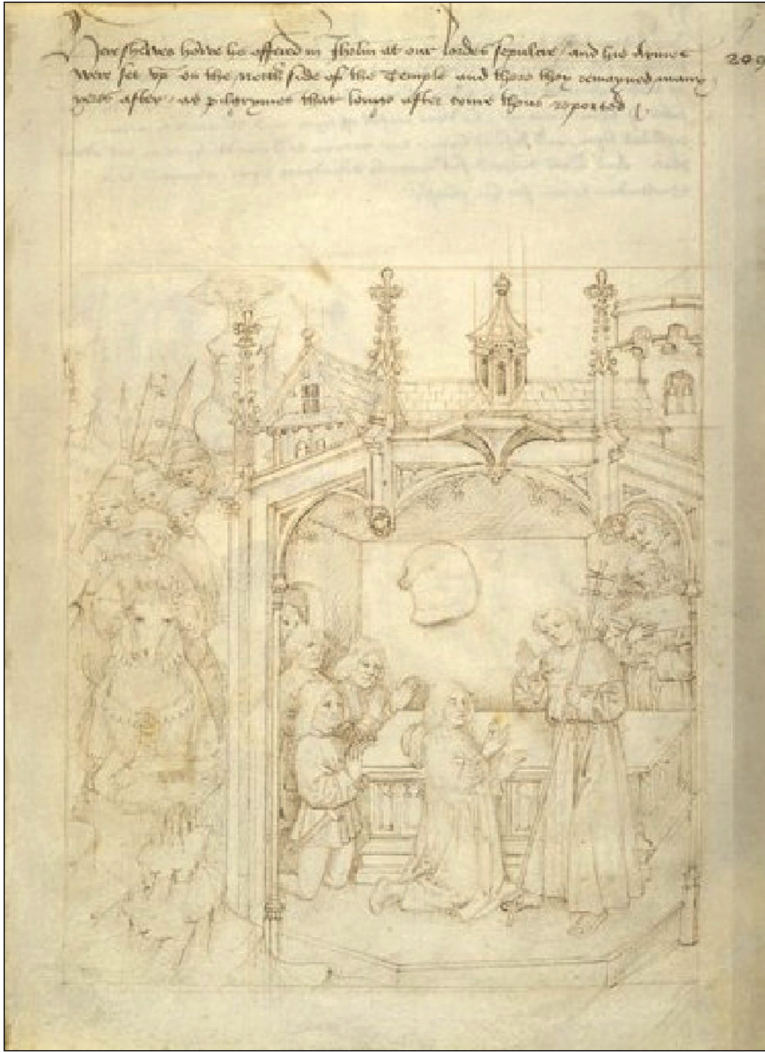 Here shewes howe he offered in Jhrlm at our lordes sepulcre and his Armes
were set vp on the north side of the Temple and there they remayned many
yeres after as pilgrymes that longe after come thens reported
209